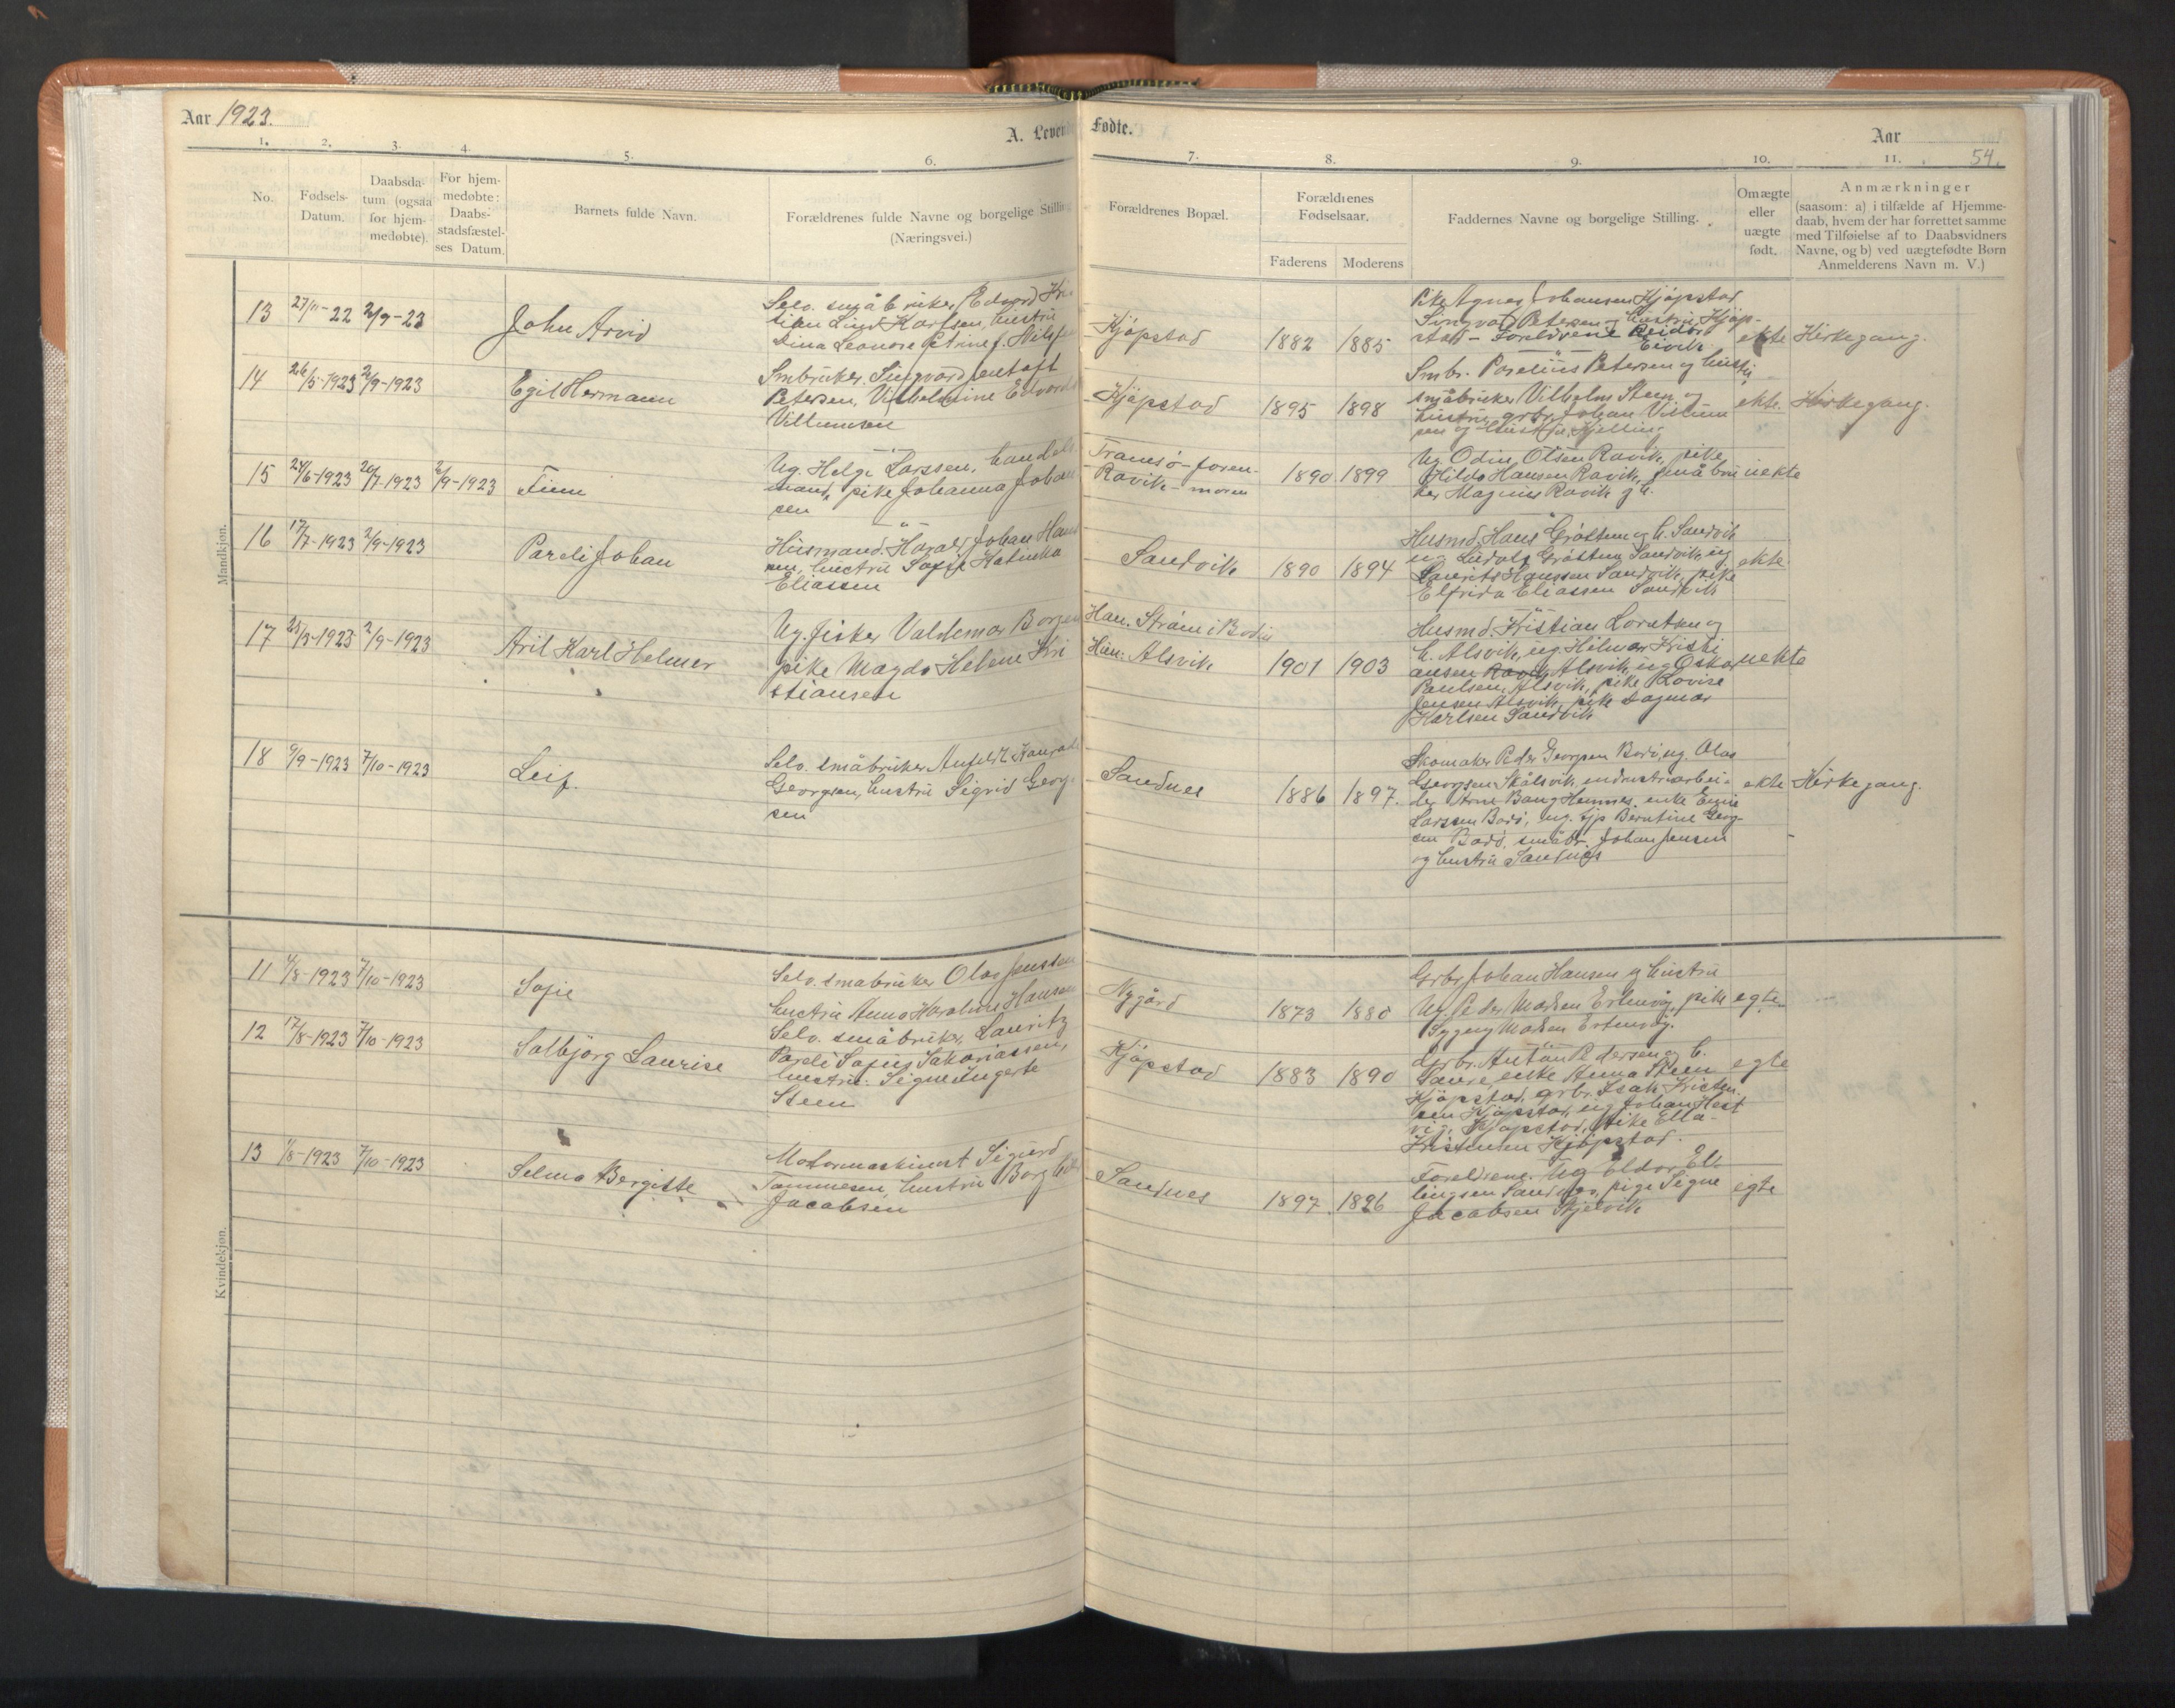 Aar 1923.
A. Levend
Fødte.
Aar
54.
1. 2. 3. 4. 5. 6. 7. 8. 9. 10. 11.
No.
Fødsels-
Datum.
Daabsda-
tum (ogsaa
for hjem-
medøbte).
For hjem-
medøbte:
Daabs-
stadsfæstel-
ses Datum.
Barnets fulde Navn.
Forældrenes fulde Navne og borgelige Stillin
(Næringsvei.)
Forældrenes Bopæl.
Forældrenes
Fødselsaar.
Faderens Moderens
Faddernes Navne og borgelige Stilling.
Om ægte
eller
uægte
født.
Anmærkninger
(saasom: a) i tilfælde af Hjemme-
daab, hvem der har forrettet samme
med Tilføielse af to Daabsvidners
Navne, og b) ved uægtefødte Børn
Anmelderens Navn m. V.)
Mandkjøn.
13 27/11-22 2/9-23
John Arvid
Selv. småbruker Edvard Kri
stian Lind Karlsen, hustru
Dina Leonore
Kjøpstad
1882 1885
Pike Agnes Johansen Kjøpstad
Singvat Petersen og hustru, Kjøp-
stad - Foreldrene Reidar
Eivik
ekte
Kirkegang.
14 26/5-1923 2/9-1923
Egil Hermann
Smbruker. Singvard
Petersen, Vilhelmine Edvard
Villumsen
Kjøpstad
1895 1898
Smbr. Parelius Petersen og hustru
småbruker Vilhelm Steen og
hustru, grbr. Johan Villum
sen og hustru,
ekte.
Kirkegang.
15 24/6-1923 20/7-1923 2/9-1923
Finn
Ug. Helge Larssen, handels
mand, pike Johanna Johan
sen
Tromsø - faren-
Ravik - moren
1890 1899
Ug Odin Olsen Ravik, pike
Hilda Hansen Ravik, småbru
ker Magnus Ravik og h.
uekte
16 17/7-1923 2/9-1923
Pareli Johan
Husmand. Harald Johan Hans
sen, hustru Sofie Katinka
Eliassen
Sandvik
1890 1894
Husmd. Hans Grøttum og h. Sandvik
ug Grøttum Sandvik, ug
Laurits Hanssen Sandvik, pike
Elfrida Eliassen Sandvik
ekte
17 25/3-1923 2/9-1923
Aril Karl Helmer
Ug. fisker Valdemar Borgen
pike Magda Helene Kri
stiansen
Han. Strøm i Bodin
Hun: Alsvik
1901 1903
Husmd. Kristian Lorntsen og
h. Alsvik, ug. Hilmar Kristi
ansen Alsvik, ug Oskar
Paulsen, Alsvik, pike Lovise
Jensen Alsvik, pike Dagmar
Karlsen Sandvik
uekte
18 9/9-1923 7/10-1923
Leif.
Selv. småbruker Anfeldt Konrad
Georgsen, hustru Sigrid Georg-
sen
Sandnes
1886 1897.
Skomaker Peder Georgsen Bodø, ug. Olas
Georgsen Skålsvik, industriarbei-
der Arne Bang Hemnes, enke
Larssen Bodø, ug. Berntine Georg-
sen Bodø, småbr. Johan Jensen
og hustru Sandnes
ekte
Kirkegang.
Kvindekjøn.
11 4/8-1923 7/10-1923
Sofie
Selv. småbruker Olaf Jenssen
hustru Anna Karoline Hansen
Nygård
1873 1880
Grbr. Johan Hansen og hustru
Ug. Peder Madsen Ertenvåg, pike
Sygeny Madsen Ertenvåg.
egte
12 17/8-1923 7/10-1923
Solbjørg Laurise
Selv. småbruker, Lauritz
Pareli Sofus Sakariassen,
hustru. Signe Ingerte
Steen
Kjøpstad
1883 1890
Grbr. Anton Pedersen og h.
Saure, enke Anna Steen
Kjøpstad, grbr. Isak Kristen
sen Kjøpstad, ug Johan Hest
vig, Kjøpstad, pike Ella
Kristensen Kjøpstad.
egte
13 1/8-1923 7/10-1923
Selma Bergitte
Motormaskinist Sigurd
Tommesen, hustru Borghild
Jacobsen
Sandnes
1897 1896
Foreldrene. Ug Eldor El-
lingsen Sandnes, pige Signe
Jacobsen Skjelvik
egte